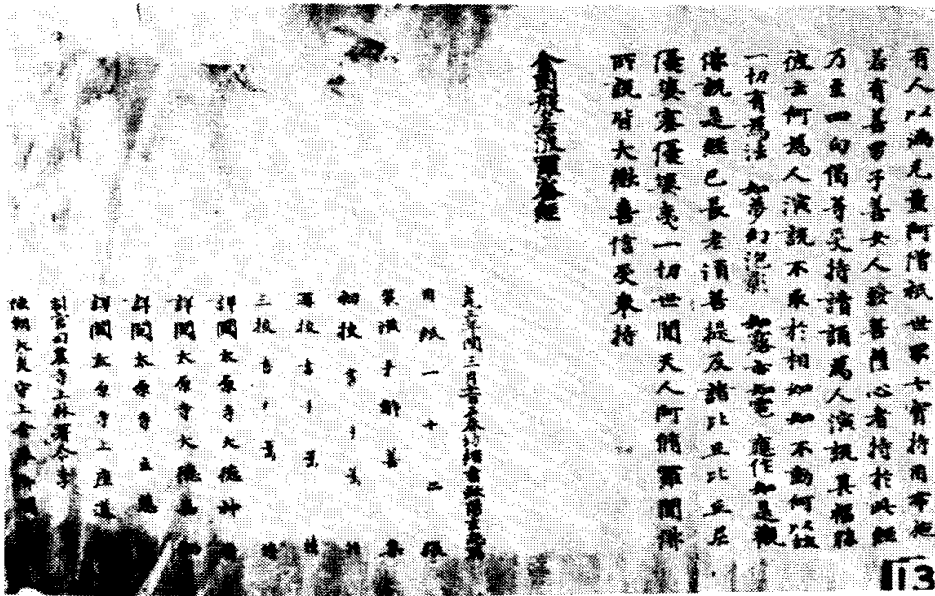 有人以滿无量阿僧祇世界七寶持用布施
若有善男子善女人發菩薩心者持於此經
乃至四句偈等受持讀誦為人演說其福勝
彼云何為人演說不取於相如如不動何以故
一切有為法 如夢幻泡影 如露亦如電 應作如是觀
佛說是經已長老須菩提及諸比丘比丘尼
優婆塞優婆夷一切世間天人阿脩羅聞佛
所說皆大歡喜信受奉持
金剛般若波羅蜜經
三年閏三月
用紙一十二張
裝潢手解善集
初校書手
再校書手
三校書手
詳閱太原寺大德神
詳閱太原寺大德嘉
詳閱太原寺主慧
詳閱太原寺上座道
判官司農寺上林署令李
使朝
13